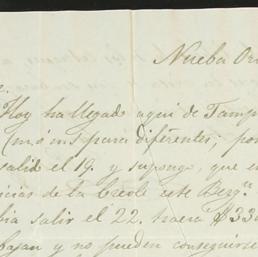 Nueba Or
Hoy ha llegado aqui de Tamp
para diferentes; por
salió el 19. y supongo, que e
icias de la Creole este Berg.n
bia salir el 22. hacia $ 33
bajan y no pueden conseguirse